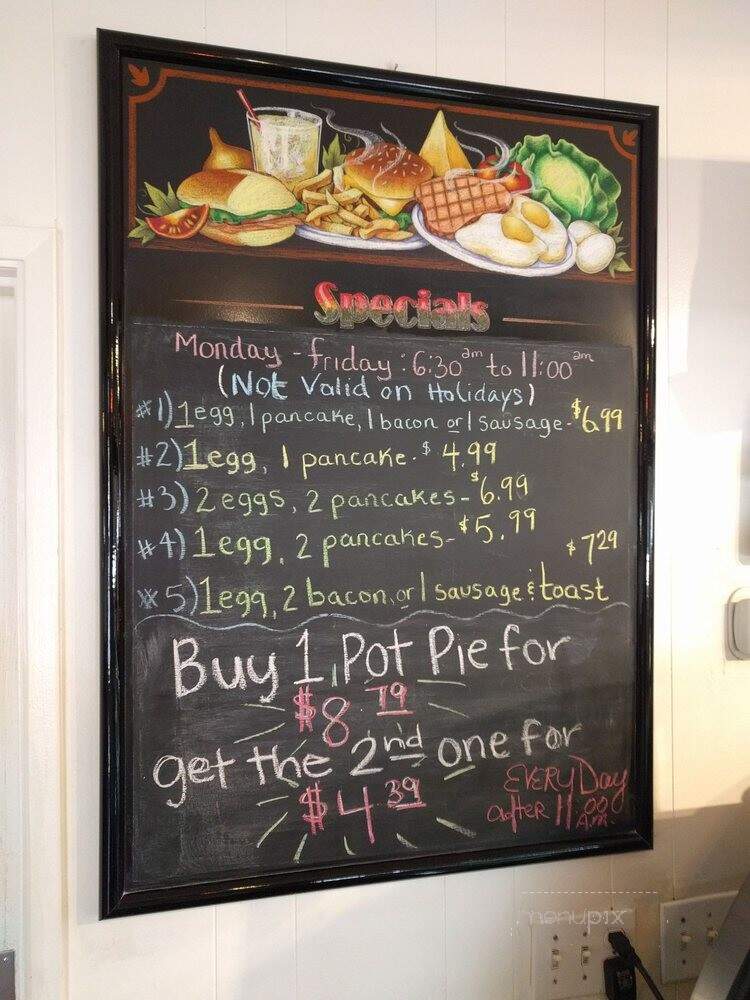 Specials
Monday - friday : 6:30 am to 11:00 am
(Not Valid on Holidays)
#1) 1egg, 1 pancake, 1 bacon or 1 sausage - $6.99
#2) 1egg, 1 pancake - $ 4.99
#3) 2 eggs, 2 pancakes - $6.99
#4) 1egg, 2 pancakes - $5.99
$7.29
#5) 1egg, 2 bacon, or 1 sausage & toast
Buy 1 Pot Pie for
$8.79
get the 2nd one for
$4.39
EVERY Day
after 11:00 A.m
menupix